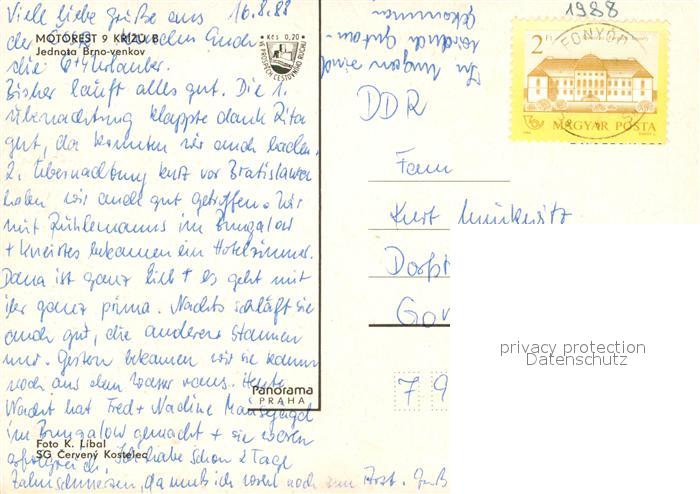 Viele liebe Grüße aus 16.8.88
der senden Euch
MOTOREST 9 KŘÍŽŮ B
Jednota Brno-venkov
die 6 + 4 Urlauber.
Bisher läuft alles gut. Die 1.
Übernachtung klappte dank Rita
gut, da konnten wir auch baden.
2. Übernachtung kurz vor Bratislava
haben wir auch gut getroffen. Wir
mit Rühlemanns im Bungalow
+ Kneistes bekamen ein Hotelzimmer.
Dana ist ganz lieb + es geht mit
ihr ganz prima. Nachts schläft sie
auch gut, die anderen staunen
nur. Gestern bekamen wir sie kaum
noch aus dem Wasser raus. Heute
Nacht hat Fred + Nadine Mäusejagd
im Bungalow gemacht + sie waren
erfolgreich. Ich habe schon 2 Tage
Zahnschmerzen, da muß ich noch zum Arzt. Gruß
Foto K. Líbal
SG Červený Kostelec
Kčs 0,20
VE PROSPĚCH CESTOVNÍHO RUCHU
Panorama
PRAHA
In Ungarn sind
wir auch gut an-
gekommen
1988
2 Ft
FONYÓD
MAGYAR POSTA
DDR
Fam
Kurt
Dorfst
Gor
7 9
privacy protection
Datenschutz